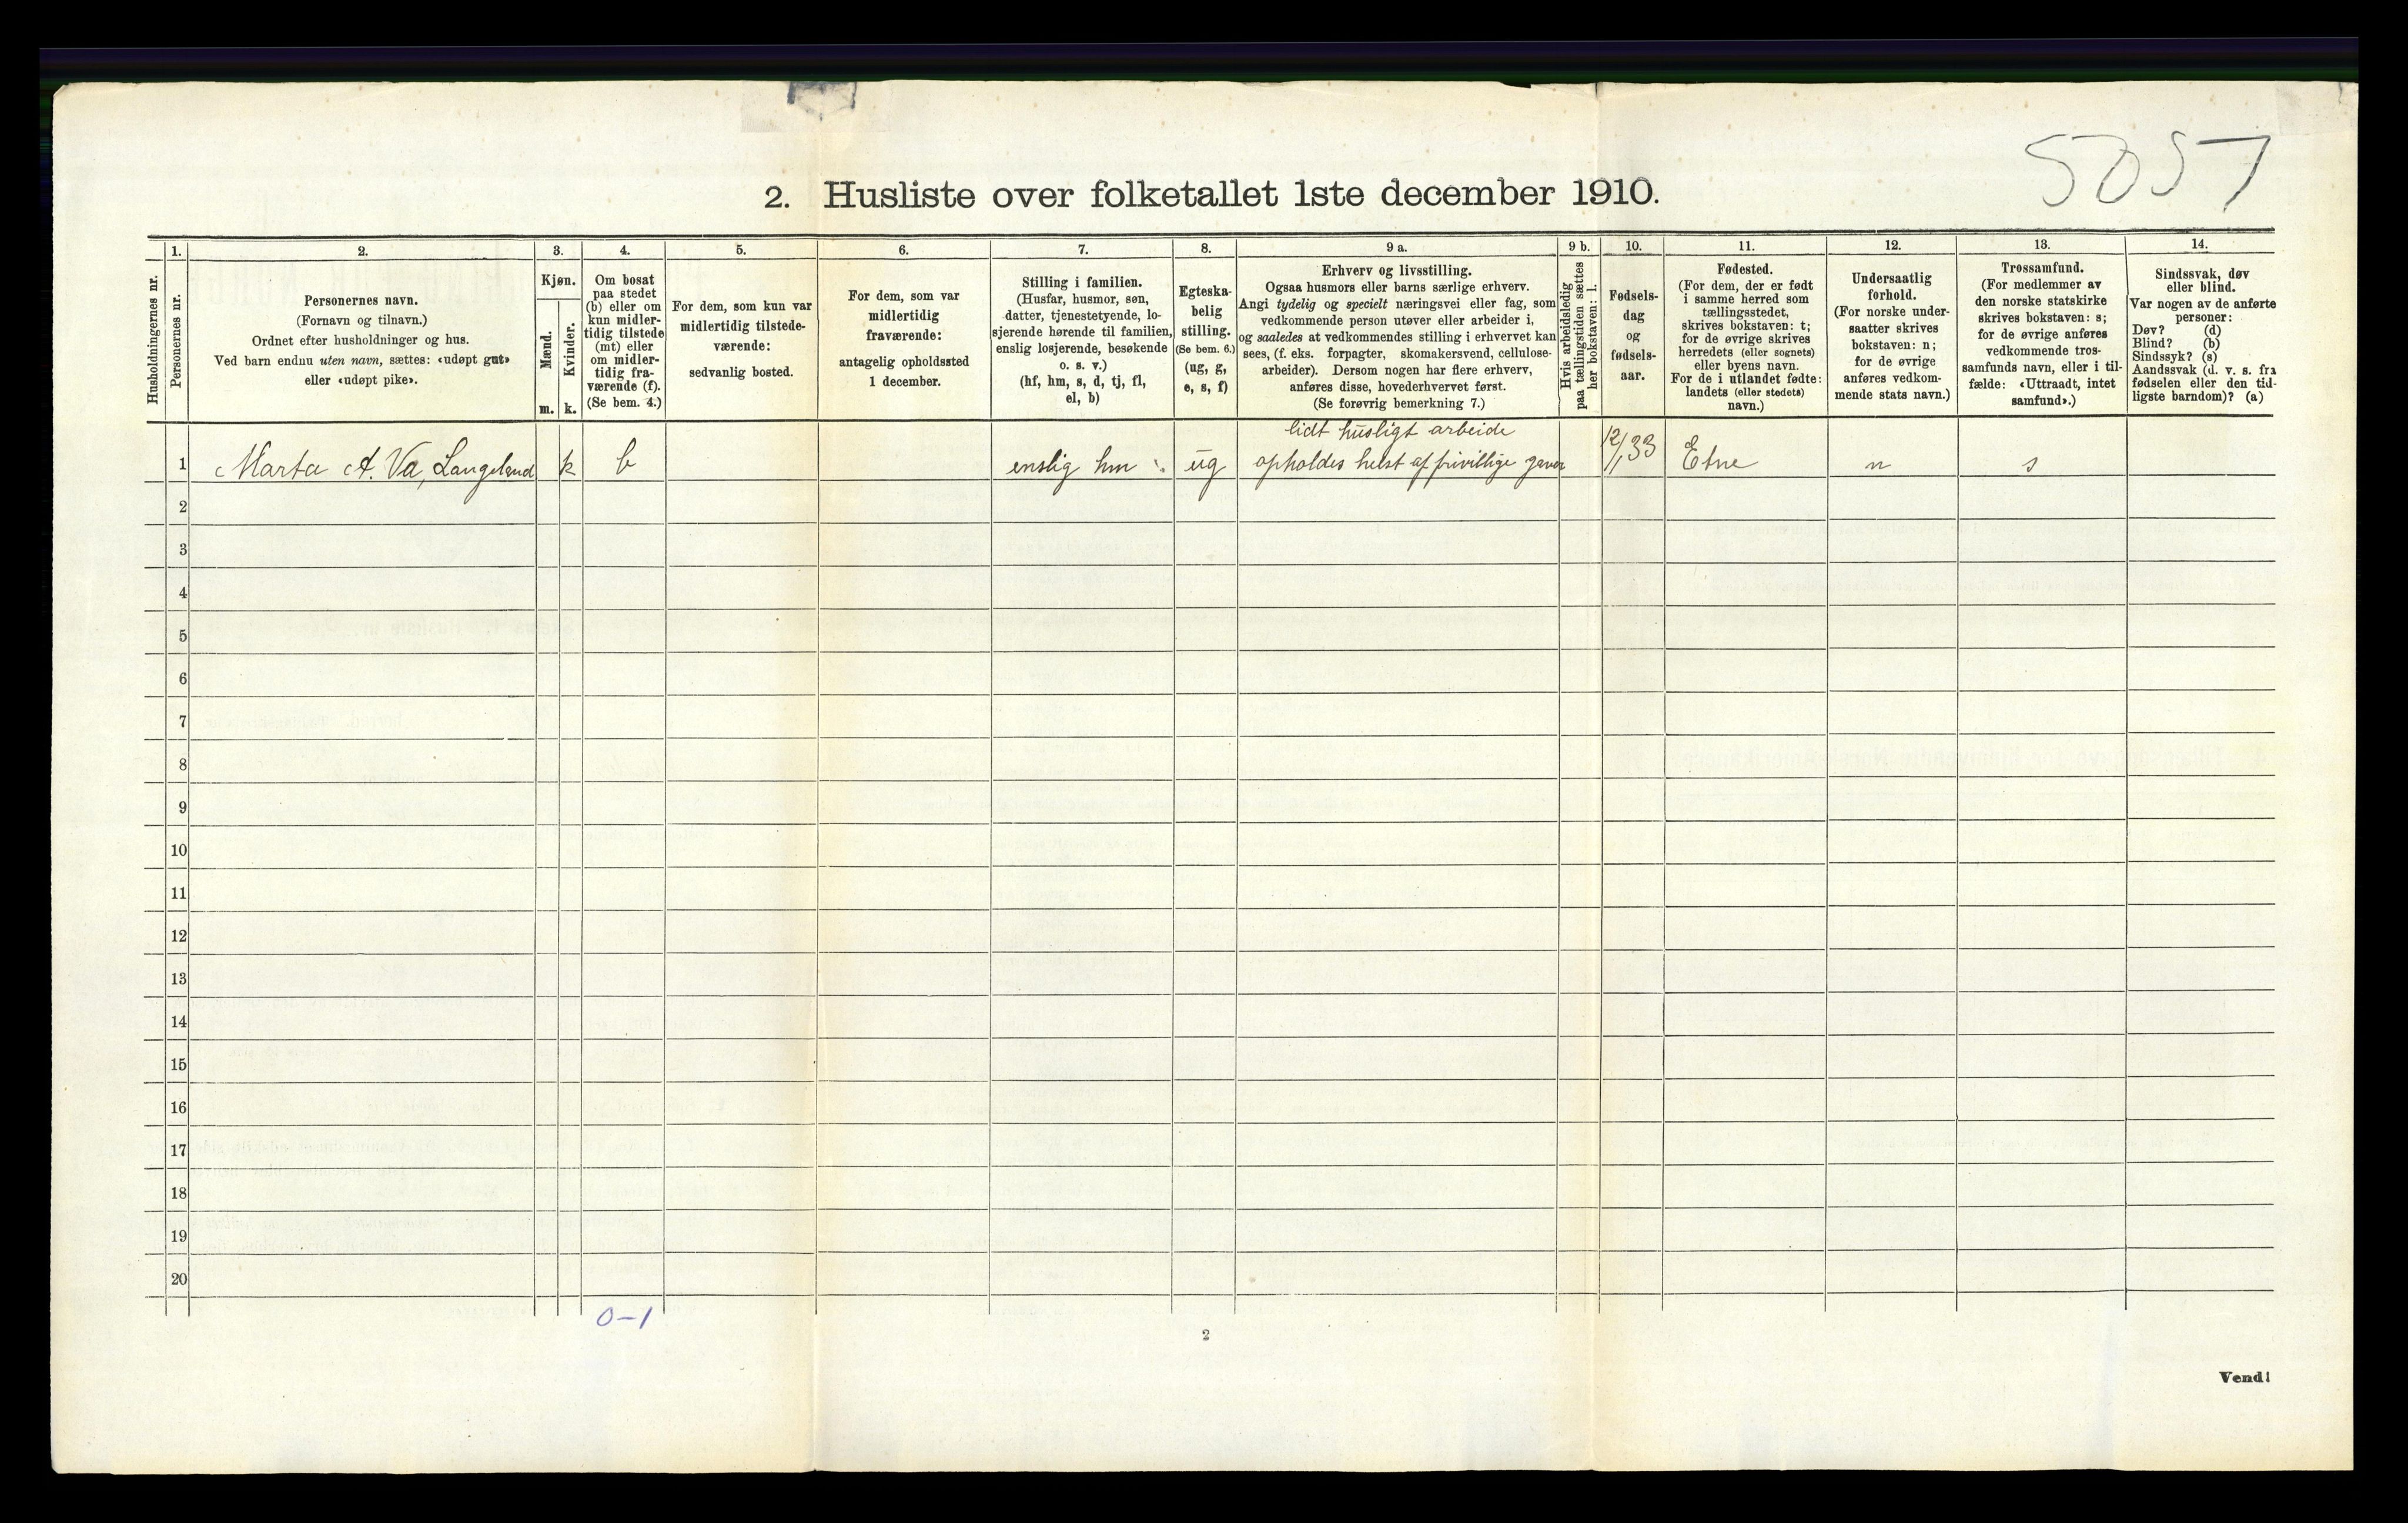 5057
2. Husliste over folketallet 1ste december 1910.
Husholdningernes nr.
1.
Personernes nr.
2.
Personernes navn.
(Fornavn og tilnavn.)
Ordnet efter husholdninger og hus.
Ved barn endnu uten navn, sættes: «udøpt gut»
eller «udøpt pike».
3.
Kjøn.
Mænd.
m.
Kvinder.
k.
4.
Om bosat
paa stedet
(b) eller om
kun midler-
tidig tilstede
(mt) eller
om midler-
tidig fra-
værende (f).
(Se bem. 4.)
5.
For dem, som kun var
midlertidig tilstede-
værende:
sedvanlig bosted.
6.
For dem, som var
midlertidig
fraværende:
antagelig opholdssted
1 december.
7.
Stilling i familien.
(Husfar, husmor, søn,
datter, tjenestetyende, lo-
sjerende hørende til familien,
enslig losjerende, besøkende
o. s. v.)
(hf, hm, s, d, tj, fl,
el, b)
8.
Egteska-
belig
stilling.
(Se bem. 6.)
(ug, g,
e, s, f)
9 a.
Erhverv og livsstilling.
Ogsaa husmors eller barns særlige erhverv.
Angi tydelig og specielt næringsvei eller fag, som
vedkommende person utøver eller arbeider i,
og saaledes at vedkommendes stilling i erhvervet kan
sees, (f. eks. forpagter, skomakersvend, cellulose-
arbeider). Dersom nogen har flere erhverv,
anføres disse, hovederhvervet først.
(Se forøvrig bemerkning 7.)
9 b.
Hvis arbeidsledig
paa tællingstiden sættes
her bokstaven: l.
10.
Fødsels-
dag
og
fødsels-
aar.
11.
Fødested.
(For dem, der er født
i samme herred som
tællingsstedet,
skrives bokstaven: t;
for de øvrige skrives
herredets (eller sognets)
eller byens navn.
For de i utlandet fødte:
landets (eller stedets)
navn.)
12.
Undersaatlig
forhold.
(For norske under-
saatter skrives
bokstaven: n;
for de øvrige
anføres vedkom-
mende stats navn.)
13.
Trossamfund.
(For medlemmer av
den norske statskirke
skrives bokstaven: s;
for de øvrige anføres
vedkommende tros-
samfunds navn, eller i til-
fælde: «Uttraadt, intet
samfund».)
14.
Sindssvak, døv
eller blind.
Var nogen av de anførte
personer:
Døv? (d)
Blind? (b)
Sindssyk? (s)
Aandssvak (d. v. s. fra
fødselen eller den tid-
ligste barndom)? (a)
lidt husligt arbeide
1 Marta A. Va, Langeland k b enslig hm ug opholdes helst af frivillige gaver 12/1 33 Etne n s
2
3
4
5
6
7
8
9
10
11
12
13
14
15
16
17
18
19
20
0-1
2
Vend!